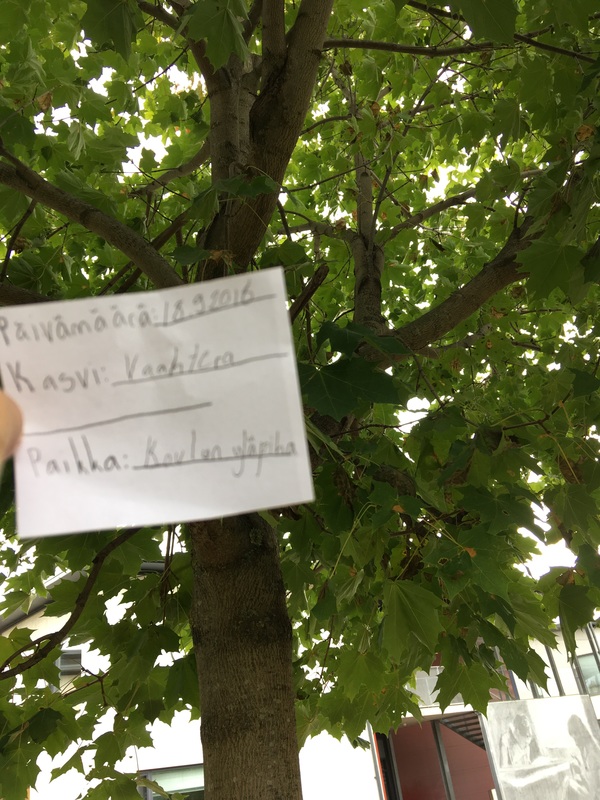 Päivämäärä: 18.9 2016
Kasvi: Vaahtera
Paikka: Koulun yläpiha